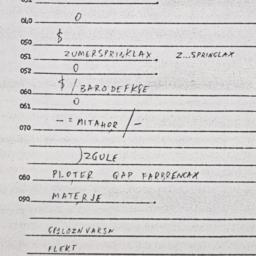 040 0
050 $
051 ZUMERSPRINKLAX Z...SPRINGLAX
052 0
060 $ / BARO.DEFKSE
061 0
070 - = MITAHOR / -
)ZGULE
080 PLOTER GAP FARBRENCAX
090 MATERJE
FLEKT